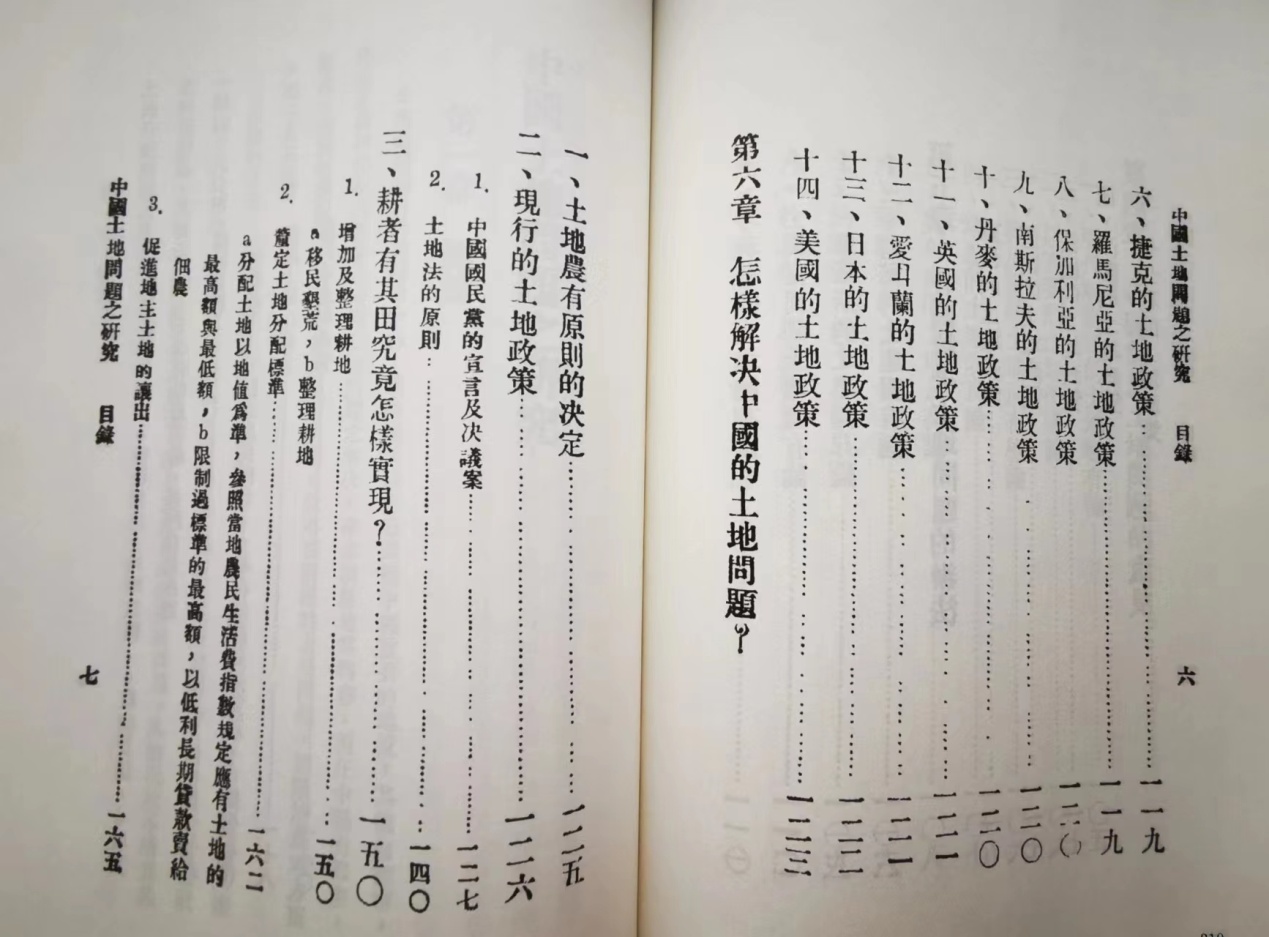 中國土地問題之研究　目錄　六
六、捷克的土地政策……一一九
七、羅馬尼亞的土地政策……一一九
八、保加利亞的土地政策……一二〇
九、南斯拉夫的土地政策……一二〇
十、丹麥的土地政策……一二〇
十一、英國的土地政策……一二一
十二、愛爾蘭的土地政策……一二一
十三、日本的土地政策……一二二
十四、美國的土地政策……一二三
第六章　怎樣解决中國的土地問題？
一、土地農有原則的决定……一二五
二、現行的土地政策……一二六
1. 中國國民黨的宣言及决議案……一二七
2. 土地法的原則……一四〇
三、耕者有其田究竟怎樣實現？……一五〇
1. 增加及整理耕地……一五〇
a移民墾荒，b整理耕地
2. 釐定土地分配標準……一六二
a分配土地以地值爲準，參照當地農民生活費指數規定應有土地的
最高額與最低額，b限制過標準的最高額，以低利長期貸款賣給
佃農
3. 促進地主土地的讓出……一六五
中國土地問題之研究　目錄　七